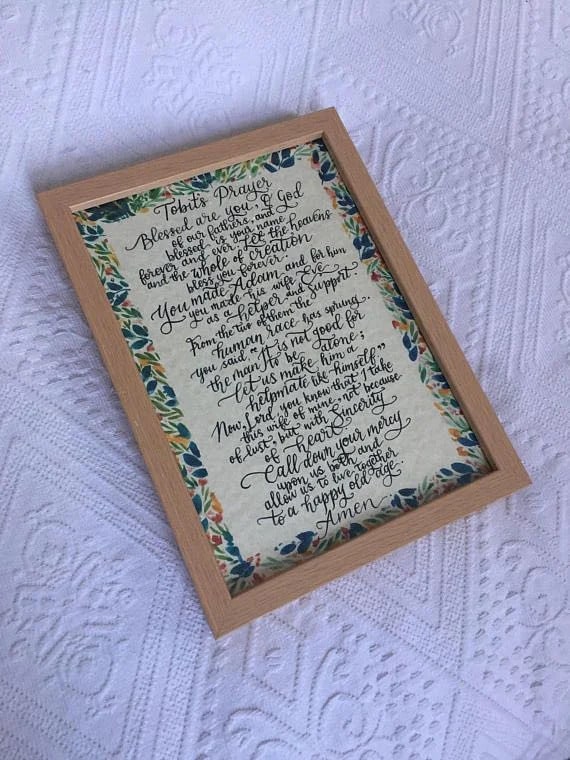 Tobit's Prayer
Blessed are you, O God
of our fathers, and
blessed is your name
forever and ever. Let the heavens
and the whole of creation
bless you forever.
You made Adam and for him
you made his wife Eve
as a helper and support
From the two of them the
human race has sprung.
you said, "It is not good for
the man to be alone;
let us make him a
helpmate like himself"
Now, Lord, you know that I take
this wife of mine, not because
of lust, but with Sincerity
of heart.
Call down your mercy
upon us both and
allow us to live together
to a happy old age.
Amen.